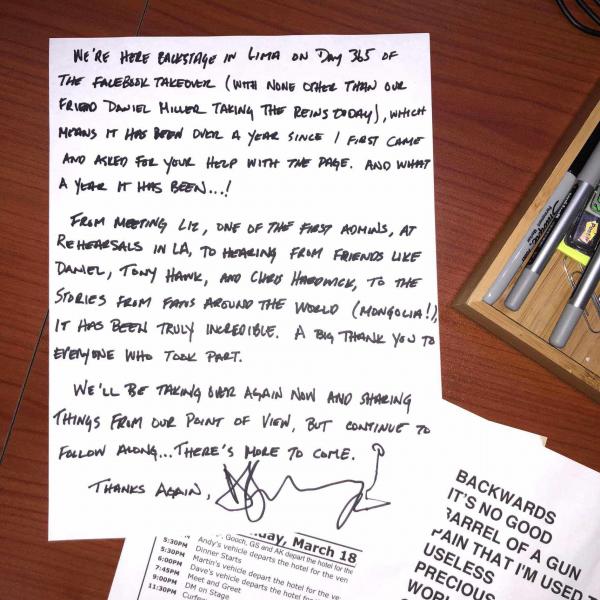 WE'RE HERE BACKSTAGE IN LIMA ON DAY 365 OF
THE FACEBOOK TAKEOVER (WITH NONE OTHER THAN OUR
FRIEND DANIEL MILLER TAKING THE REINS TODAY), WHICH
MEANS IT HAS BEEN OVER A YEAR SINCE I FIRST CAME
AND ASKED FOR YOUR HELP WITH THE PAGE. AND WHAT
A YEAR IT HAS BEEN...!
FROM MEETING LIZ, ONE OF THE FIRST ADMINS, AT
REHEARSALS IN LA, TO HEARING FROM FRIENDS LIKE
DANIEL, TONY HAWK, AND CHRIS HARDWICK, TO THE
STORIES FROM FANS AROUND THE WORLD (MONGOLIA!),
IT HAS BEEN TRULY INCREDIBLE. A BIG THANK YOU TO
EVERYONE WHO TOOK PART.
WE'LL BE TAKING OVER AGAIN NOW AND SHARING
THINGS FROM OUR POINT OF VIEW, BUT CONTINUE TO
FOLLOW ALONG... THERE'S MORE TO COME.
THANKS AGAIN,
day, March 18
Gooch, GS and AK depart the hotel for the
5:30PM Andy's vehicle departs the hotel for the ven
5:30PM Dinner Starts
6:00PM Martin's vehicle departs the hotel for the ve
7:45PM Dave's vehicle departs the hotel for the
9:00PM Meet and Greet
11:30PM DM on Stage
Curfew
BACKWARDS
IT'S NO GOOD
BARREL OF A GUN
PAIN THAT I'M USED T
USELESS
PRECIOUS
WORL
Sharpie
Post-it